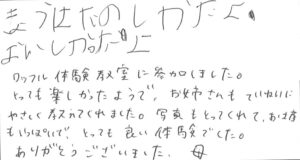 きょうはたのしかたよ
おいしかったよ
ワッフル体験教室に参加しました。
とっても楽しかったようで、お姉さんもていねいに
やさしく教えてくれました。写真もとってくれて、お土産
もいっぱいで、とっても良い体験でした。
ありがとうございました。母